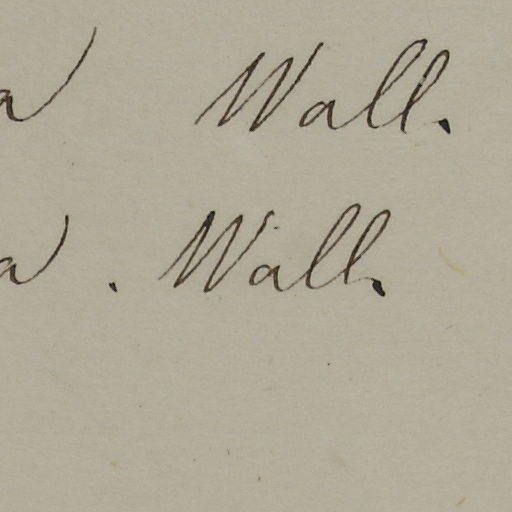 a Wall.
a . Wall.